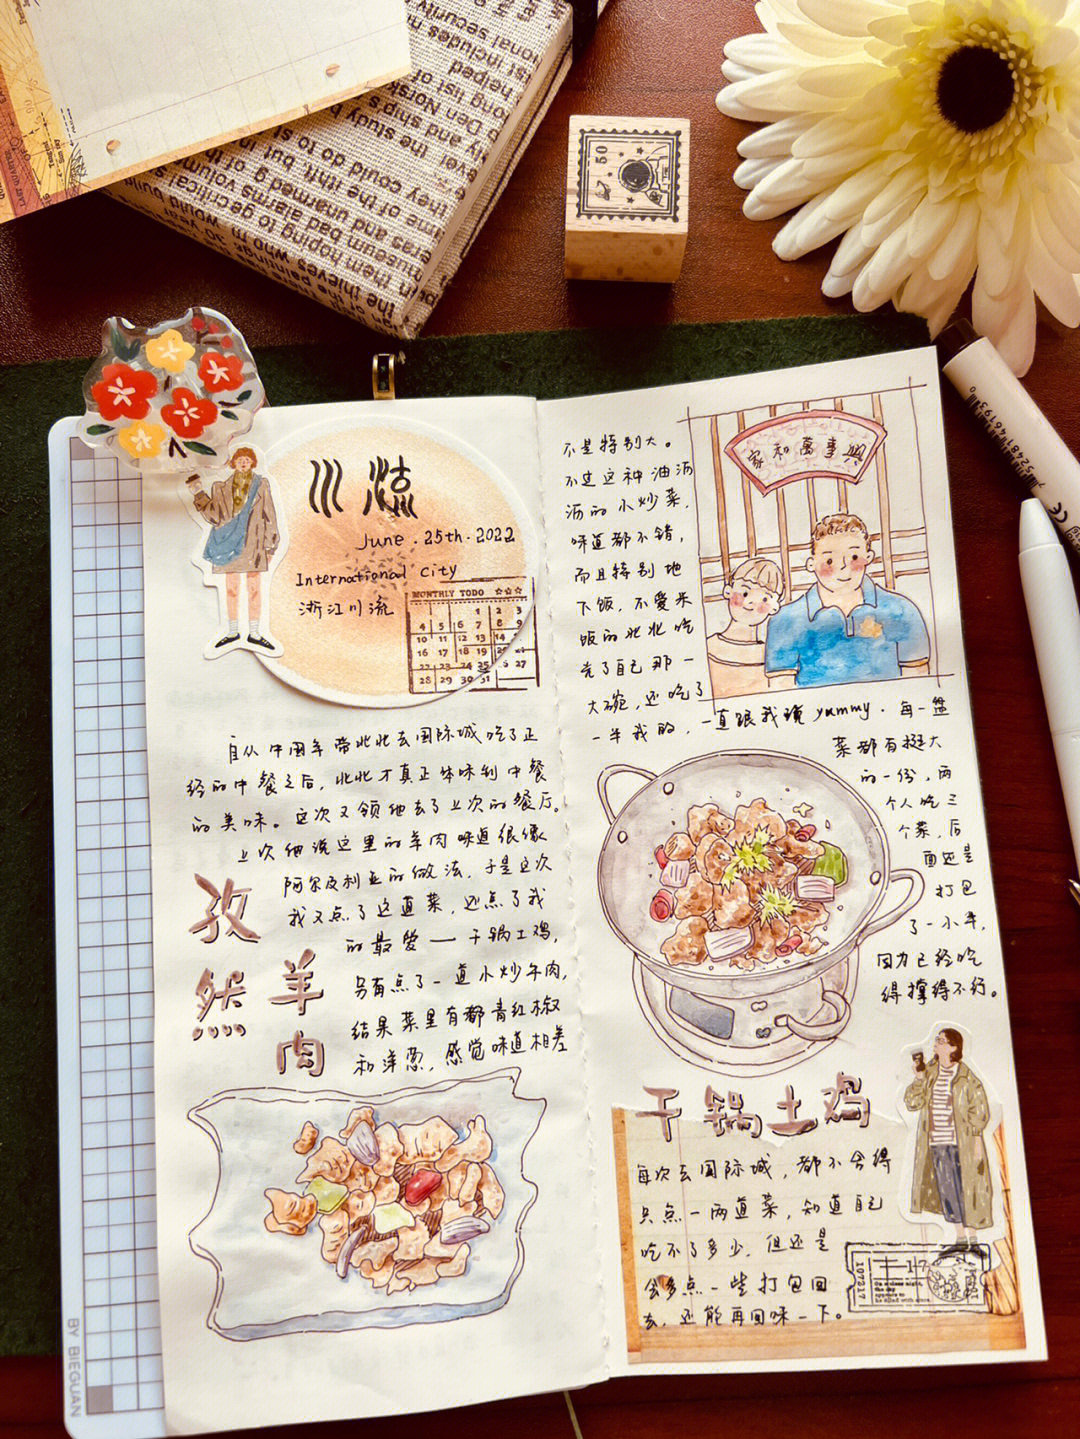 川流
June. 25th. 2022
International City
浙江川流
MONTHLY TODO
自从中国年带北北去国际城吃了正
经的中餐之后，北北才真正体味到中餐
的美味。这次又领他去了上次的餐厅。
上次他说这里的羊肉味道很像
阿尔及利亚的做法，于是这次
我又点了这道菜，还点了我
的最爱——干锅土鸡，
另有点了一道小炒牛肉，
结果菜里有都青红椒
和洋葱，感觉味道相差
孜然羊肉
不是特别大。
不过这种油沥
沥的小炒菜，
味道都不错，
而且特别地
下饭，不爱米
饭的北北吃
光了自己那一
大碗，还吃了
一半我的，一直跟我说yummy.每一盘
菜都有挺大
的一份，两
个人吃三
个菜，后
面还是
打包
了一小半，
因为已经吃
得撑得不行。
家和萬事興
干锅土鸡
每次去国际城，都不舍得
只点一两道菜，知道自己
吃不了多少，但还是
会多点一些打包回
去，还能再回味一下。
107217
BY BIEGUAN
50